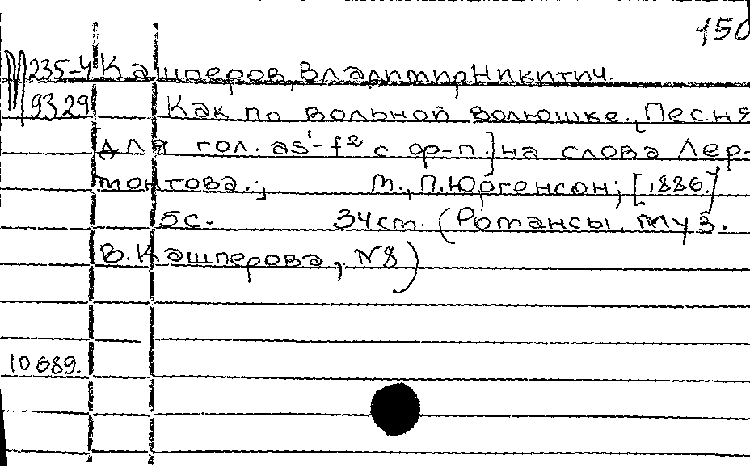 150
М 235-4 Кашперов, Владимир Никитич.
9329 Как по вольной волюшке. [Песня
для гол. as¹-f² с ф-п.] на слова Лер-
монтова.; М., П. Юргенсон; [1886.]
5с. 34см. (Романсы муз.
В. Кашперова, N8)
10689.